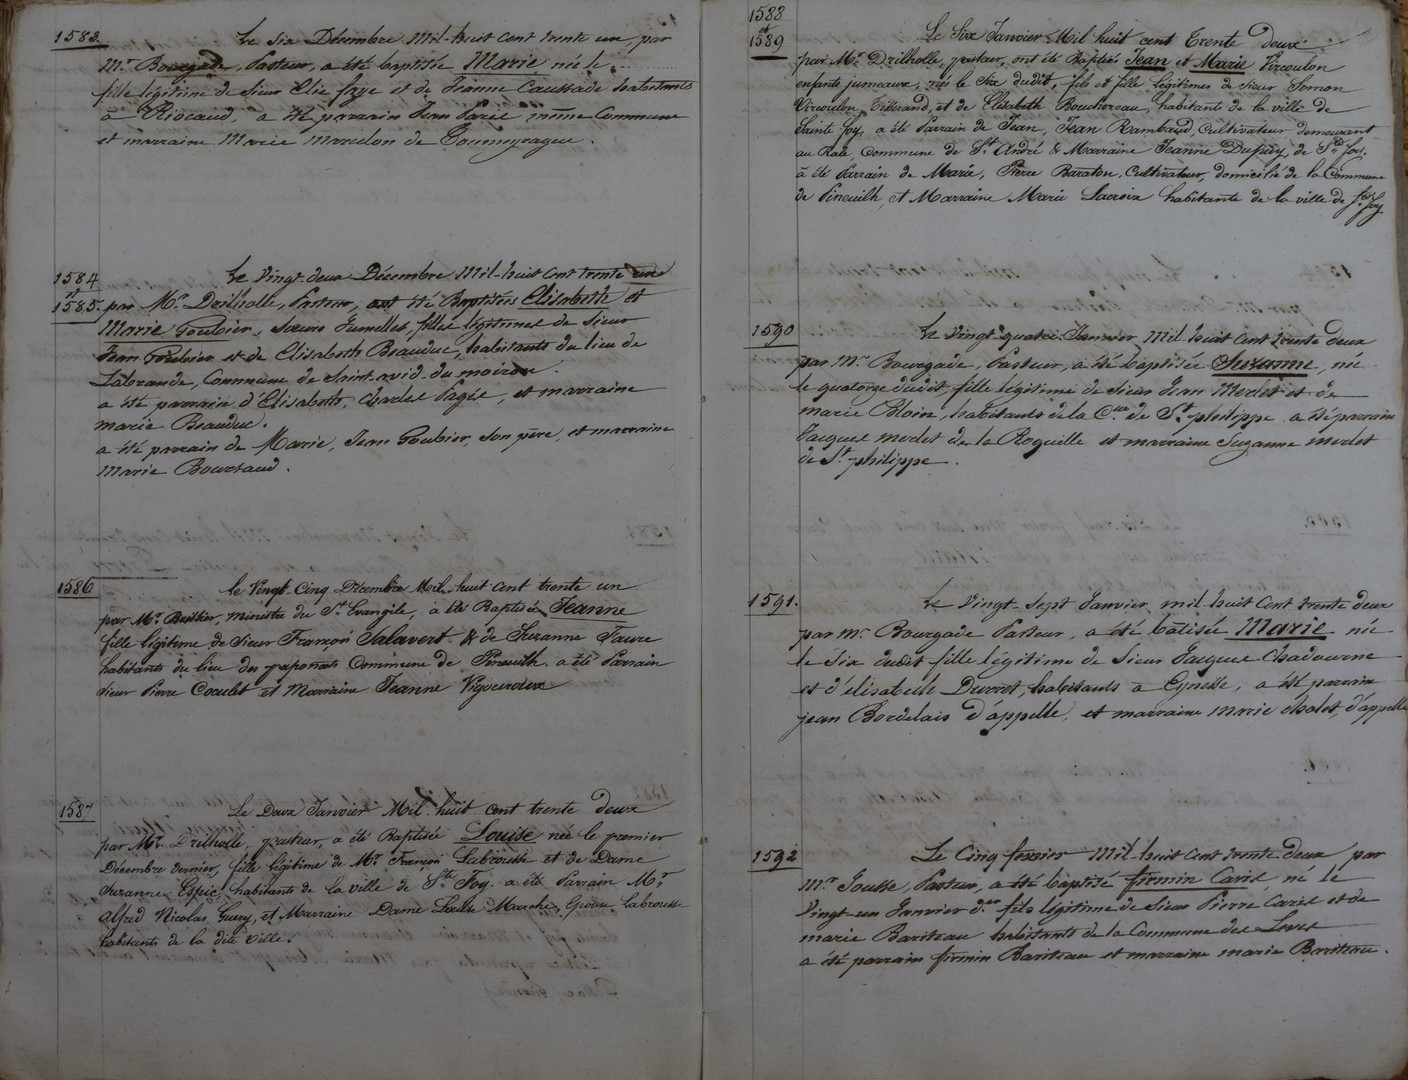 1583.
Le Six Décembre Mil-huit cent trente un, par
Mr. Bourgade, Pasteur, a été baptisée Marie née le
fille légitime de Sieur Elie faye et de Jeanne Caussade habitants
à Riocaud, a été parrain Jean Paris même Commune
et marraine Marie Marcelon de
1584
et
1585.
Le Vingt-deux Décembre Mil-huit cent trente une
par Mr. Drilholle, Pasteur, ont été Baptisées Elisabeth et
Marie Goubier, Sœurs Jumelles, filles légitimes de Sieur
Jean Goubier et de Elisabeth Beauduc, habitants du lieu de
Labrande, Commune de Saint-avid-du moiron.
a été parrain d'Elisabeth, Charles Pagès, et marraine
marie Beauduc.
a été parrain de Marie, Jean Goubier, son père, et marraine
Marie Boursaud.
1586
Le Vingt Cinq Décembre Mil-huit cent trente un
par Mr. ministre du St Evangile, a été Baptisée Jeanne
fille légitime de Sieur François Salavert & de Suzanne Faure
habitants du lieu des Commune de Pineuilh. a été Parrain
Sieur Pierre Coculet et Marraine Jeanne Vigouroux
1587
Le Deux Janvier Mil-huit cent trente deux
par Mr. Drilholle, pasteur, a été Baptisée Louise née le premier
Décembre dernier, fille légitime de Mr François Labrousse et de Dame
Suzanne Espic, habitants de la ville de Ste Foy. a été Parrain Mr
Alfred Nicolas Guery, et Marraine Dame Louise Marche, Epouse Labrousse
habitants de la dite Ville.
1588
et
1589
Le Six Janvier Mil huit cent Trente deux
par Mr. Drilholle, pasteur, ont été Baptisés Jean et Marie Vircoulon
enfants jumeaux, nés le Six dudit, fils et fille légitimes de Sieur Simon
Vircoulon, Tisserand, et de Elisabeth Bouchereau, habitants de la ville de
Sainte foy, a été Parrain de Jean, Jean Rambaud, Cultivateur demeurant
au Râle, Commune de St André & Marraine Jeanne Dupuy, de Ste foy.
à été Parrain de Marie, Pierre Baraton, Cultivateur, domicilié de la Commune
de Pineuilh, et Marraine Marie Lacroix habitante de la ville de Ste foy
1590
Le Vingt quatre Janvier Mil huit cent trente deux
par Mr Bourgade, Pasteur, a été baptisée Suzanne, née
le quatorze dudit, fille légitime de Sieur Jean Merlet et de
marie Bloin, habitants de la Cne de St philippe. a été parrain
Jacques merlet de la Roquille et marraine Suzanne merlet
de St philippe.
1591.
Le Vingt-sept Janvier, mil huit cent trente deux
par mr Bourgade Pasteur, a été bâtisée Marie née
le Six dudit fille légitime de Sieur Jacques Chadourne
et d'élisabeth Durret, habitants à Eynesse, a été parrain
jean Bordelais d'appelle, et marraine marie cholet, d'appelle
1592
Le Cinq fevrier Mil-huit cent trente deux par
Mr Jousse, Pasteur, a été baptisé firmin Caris, né le
Vingt-un Janvier der fils légitime de Sieur Pierre Caris et de
marie Bariteau habitants de la Commune des Leves
a été parrain firmin Bariteau et marraine marie Bariteau.